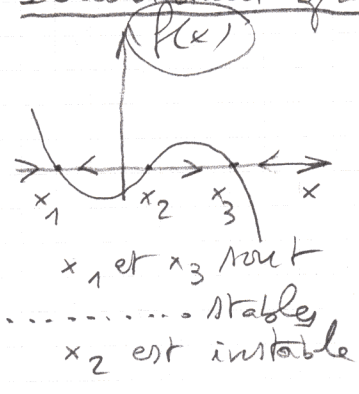 f(x)
x₁ x₂ x₃ x
x₁ et x₃ sont
........... stables
x₂ est instable